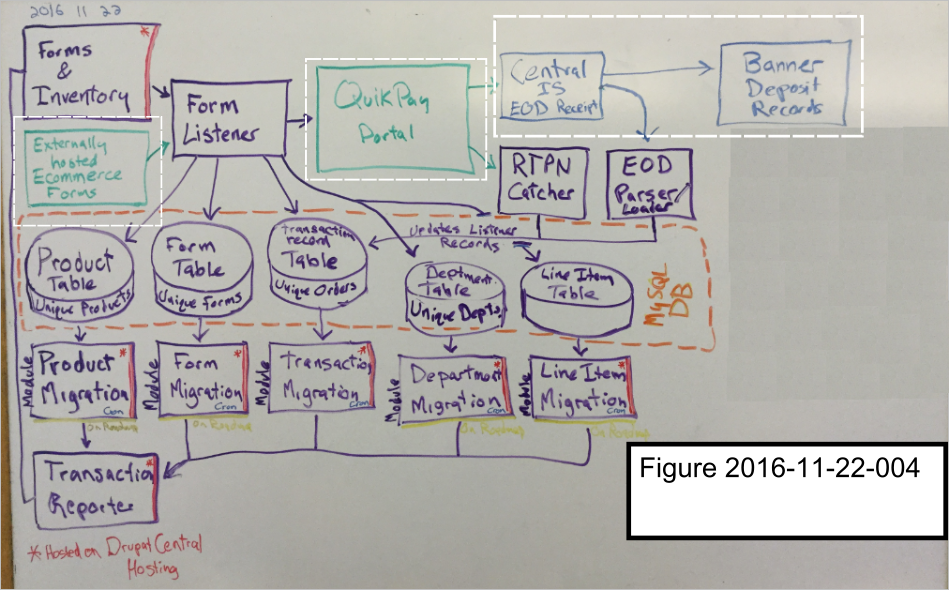 2016 11 22
Forms *
&
Inventory
Form
Listener
QuikPay
Portal
Central
IS
EOD Receipt
Banner
Deposit
Records
Externally
hosted
Ecommerce
Forms
RTPN
Catcher
EOD
Parser/
Loader
Updates Listener
Records
Product
Table
Unique Products
Form
Table
Unique Forms
Transaction
record
Table
Unique Orders
Deptment
Table
Unique Depts.
Line Item
Table
MySQL
DB
Module
Product *
Migration
Cron
On Roadmap
Module
Form *
Migration
Cron
On Roadmap
Module
Transaction *
Migration
Cron
Module
Department *
Migration
Cron
On Roadmap
Module
Line Item *
Migration
Cron
On Roadmap
Transaction *
Reporter
* Hosted on Drupal Central
Hosting
Figure 2016-11-22-004